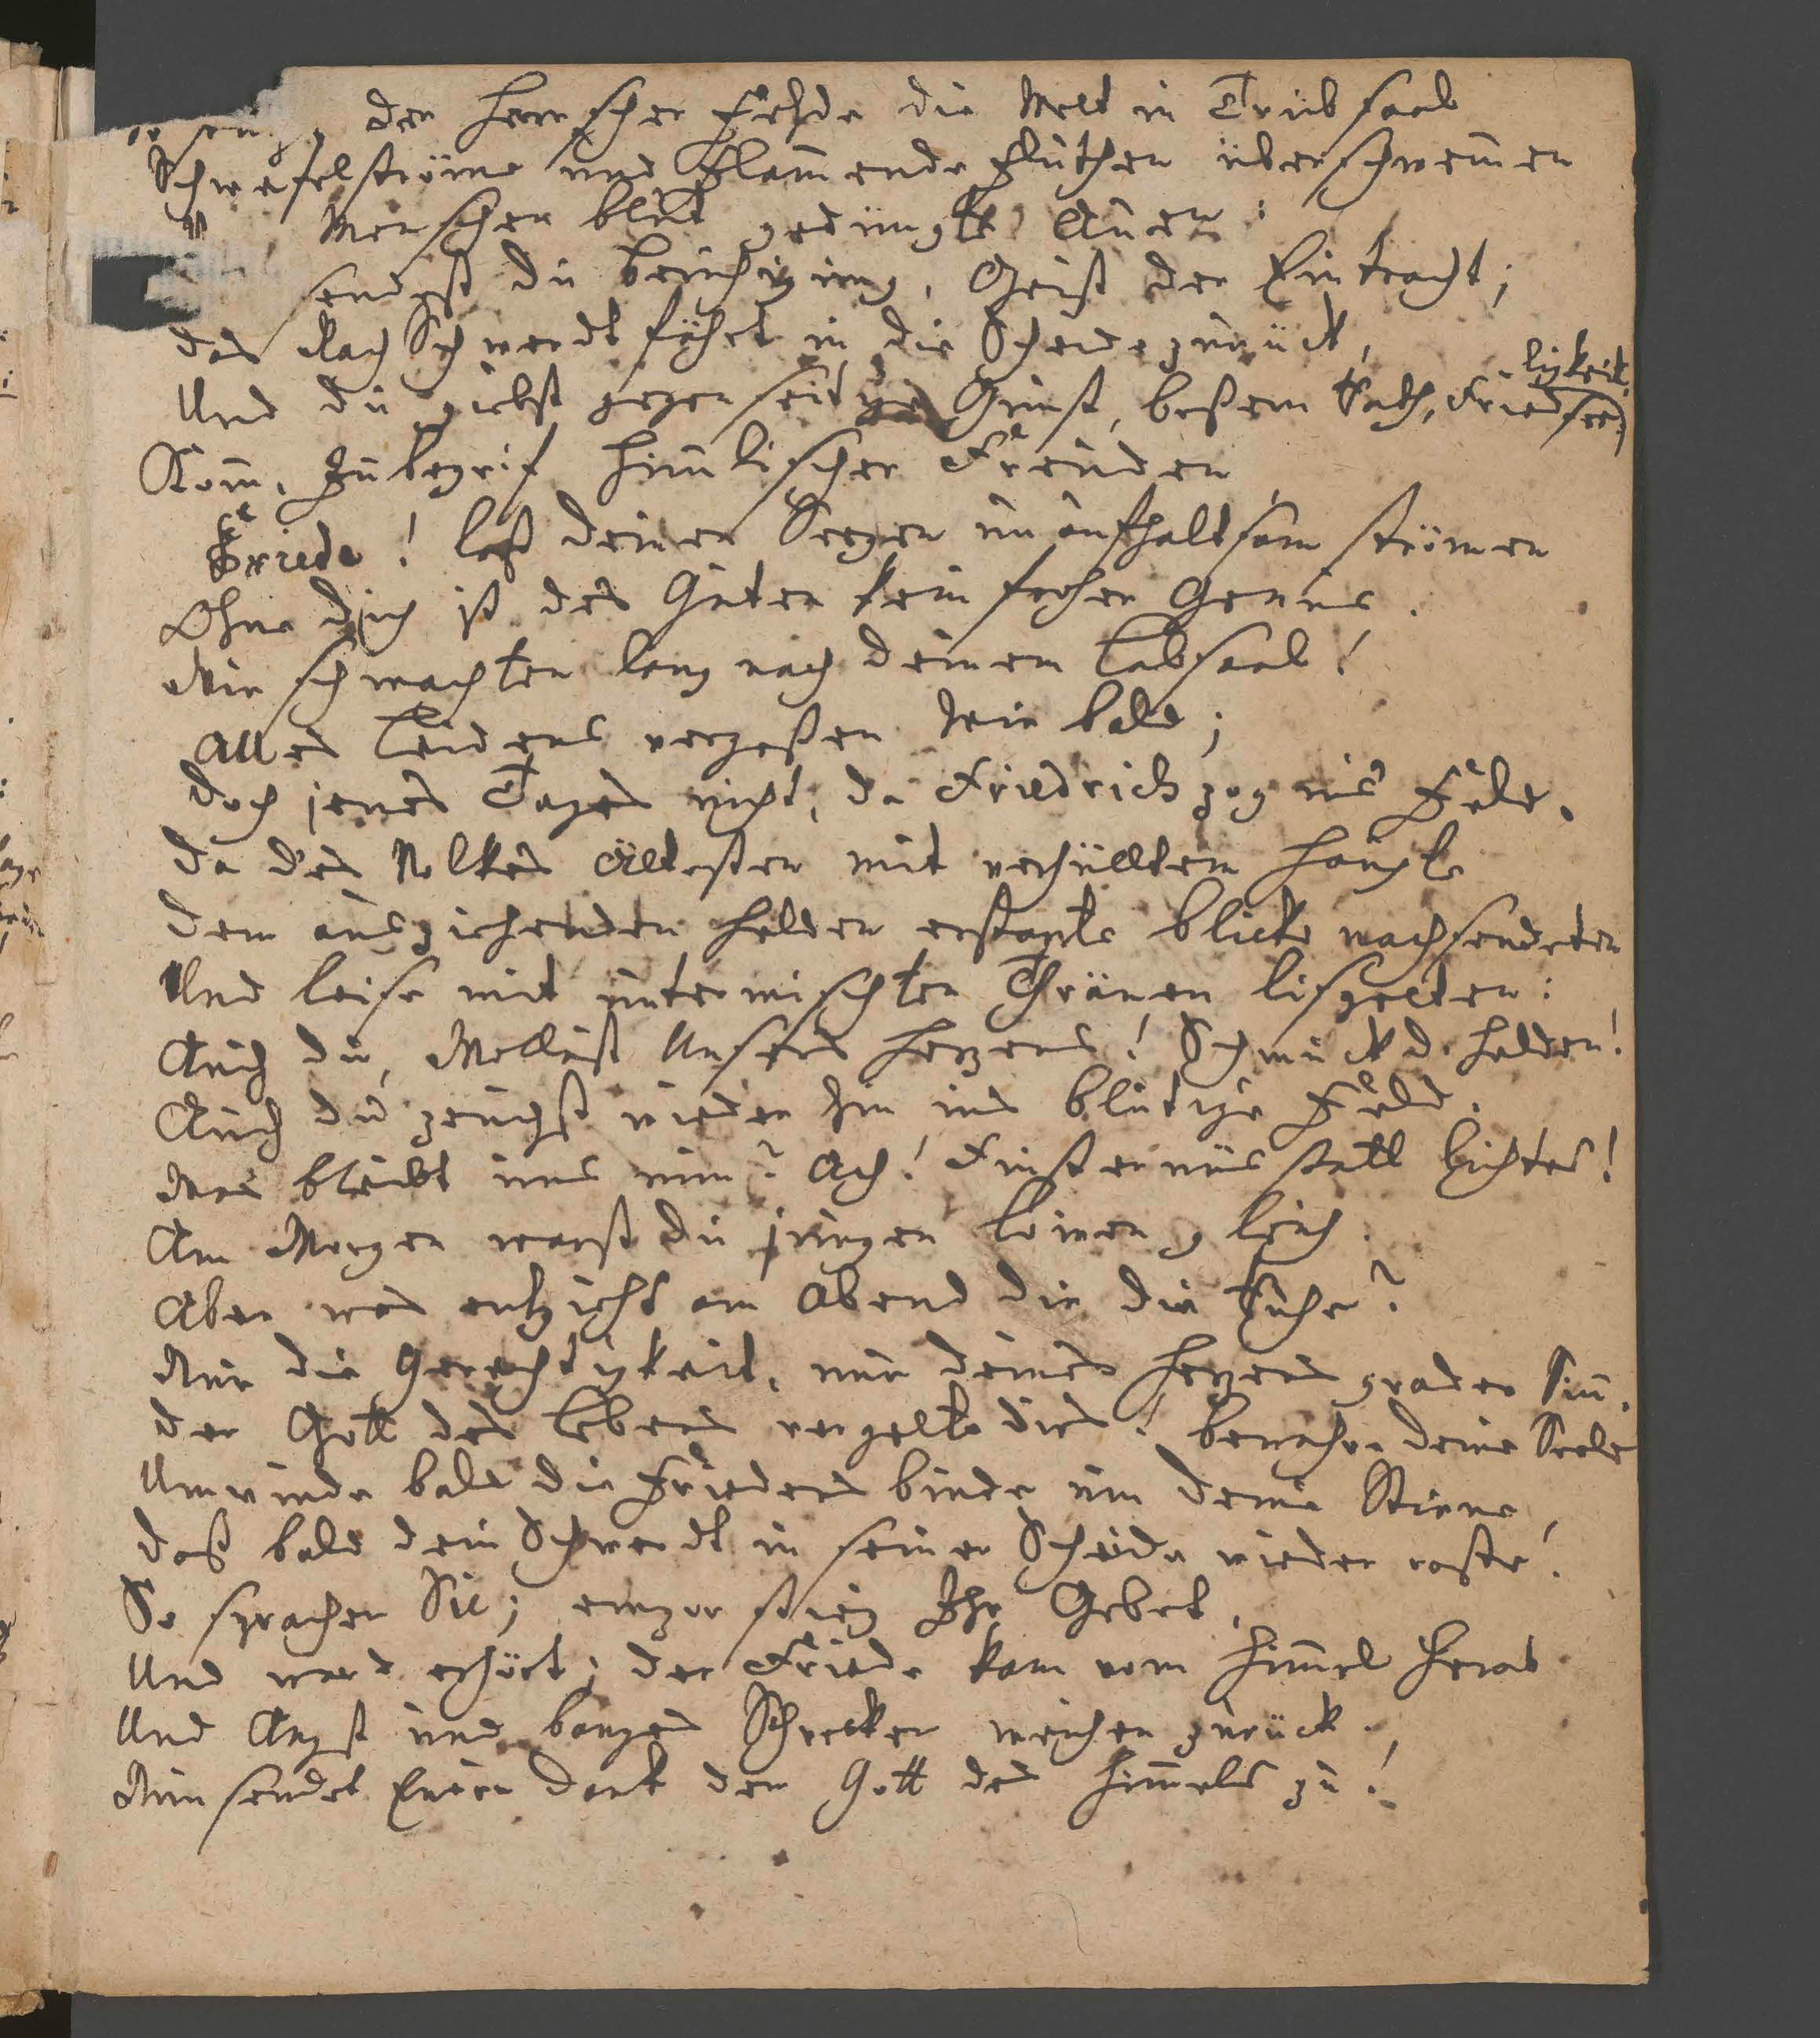 der Herrscher Fehde die Welt in Trübsaal
Schwefelströme und Flam̄ende Fluthen überschwem̄en
Menschen blut gedüngte Auen:
sendest du Beruhigung, Geist der Eintracht;
das Rach Schwerdt fährt in die Scheide zurück,
Und du giebst gegenseitige Gunst, beßern Rath, Friedseeligkeit.
Kom̄, Inbegrif him̄lischer Freuden
Friede! laß deinen Seegen unaufhaltsam strömen
Ohne dich ist des Guten kein froher Genus.
Wir schmachten lang nach deinem Labsaal!
Alles Leidens vergeßen wir bald;
Doch jenes Tages nicht, da Friedrich zog ins Feld.
Da des Volkes Ältesten mit verhülltem Haupte
Dem ausziehenden Helden erstarte Blicke nachsendeten
Und leise mit untermischten Thränen lispelten:
Auch du, Wollust Unsers Herzens! Schmuck d. Helden!
Auch du zeuchst wieder hin ins blutige Feld.
Was bleibt uns nun? Ach! Finsternüs statt Lichtes!
Am Morgen warst du jungen Löwen gleich.
Aber was entzieht am Abend dir die Ruhe?
Nur die Gerechtigkeit, nur deines Herzens grader Sin̄.
Der Gott des Lebens vergelte dirs! bewahre deine Seele
Umwinde bald die Friedens binde um deine Stirne,
Daß bald dein Schwerdt in seiner Scheide wieder raste!
So sprachen Sie; empor stieg Ihr Gebet,
Und ward erhört; der Friede kam vom Him̄el herab
Und Angst und banges Schrecken weichen zurück.
Nun sendet Euern Dank dem Gott des Him̄els zu!